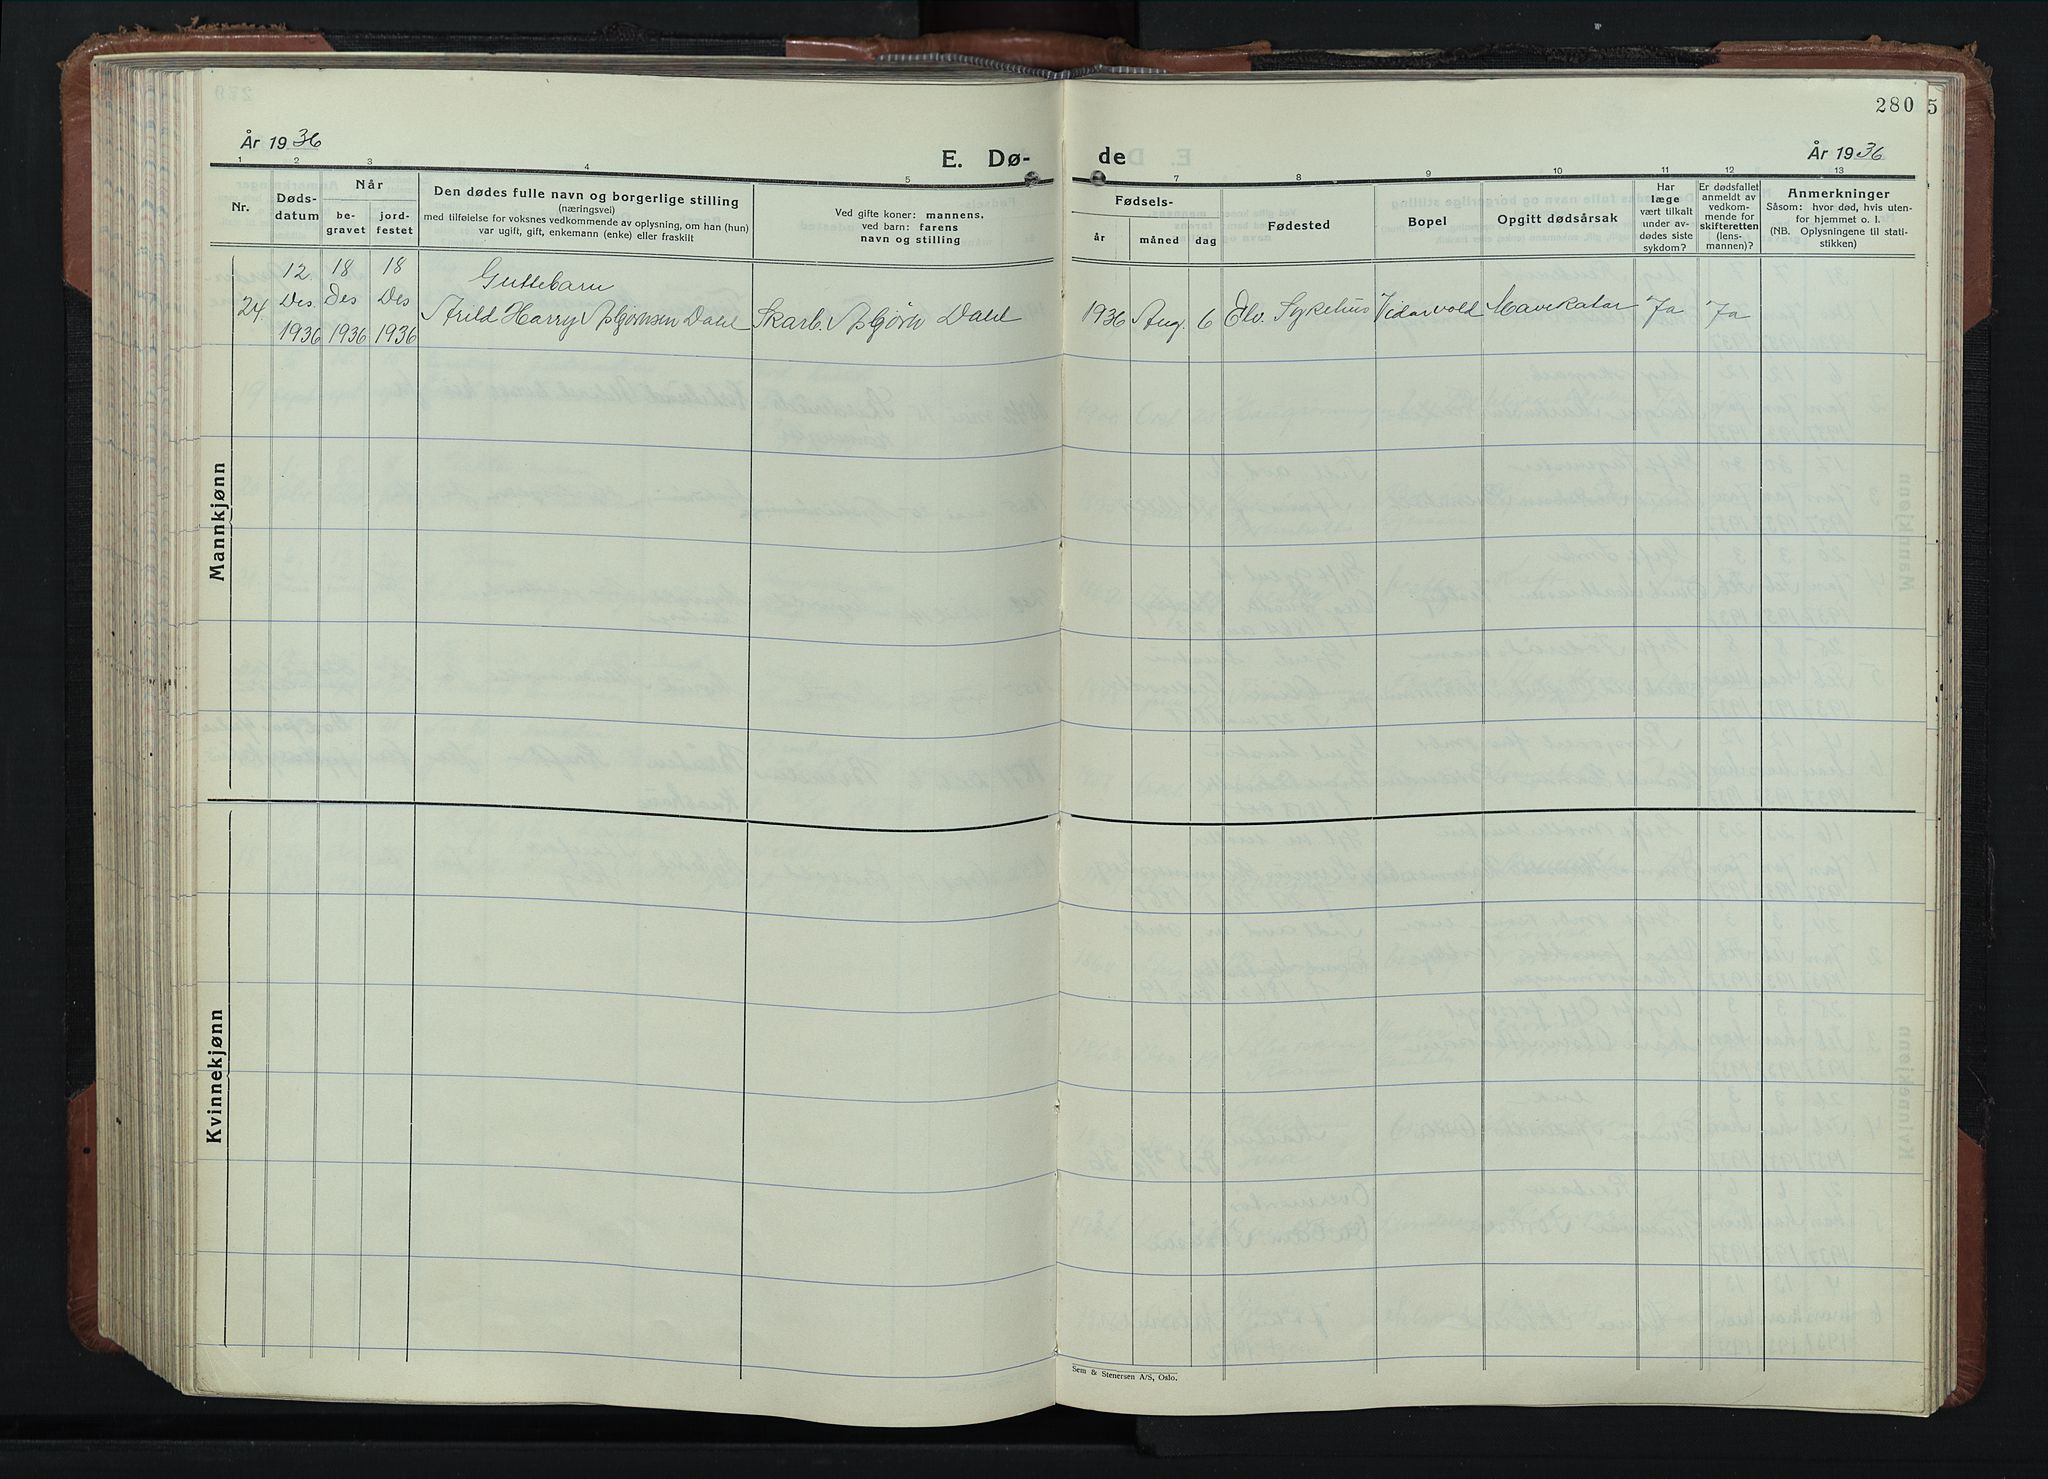 280
5
År 1936
E. Dø-
de
År 1936
1
2
3
4
5
7
8
9
10
11
12
13
Nr.
Døds-
datum
Når
be-
gravet
jord-
festet
Den dødes fulle navn og borgerlige stilling
(næringsvei)
med tilføielse for voksnes vedkommende av oplysning, om han (hun)
var ugift, gift, enkemann (enke) eller fraskilt
Ved gifte koner: mannens,
ved barn: farens
navn og stilling
Fødsels-
år
måned
dag
Fødested
Bopel
Opgitt dødsårsak
Har
læge
vært tilkalt
under av-
dødes siste
sykdom?
Er dødsfallet
anmeldt av
vedkom-
mende for
skifteretten
(lens-
mannen)?
Anmerkninger
Såsom: hvor død, hvis uten-
for hjemmet o. l.
(NB. Oplysningene til stati-
stikken)
12. 18 18 Guttebarn
24. Des. Des Des Arild Harry Asbjørnsen Dahl Skarb. Asbjørn Dahl 1936 Aug. 6 Elv. Sykehus Vidarvold Mavekatar Ja Ja
1936 1936 1936
Mannkjønn
Kvinnekjønn
Sem & Stenersen A/S, Oslo.